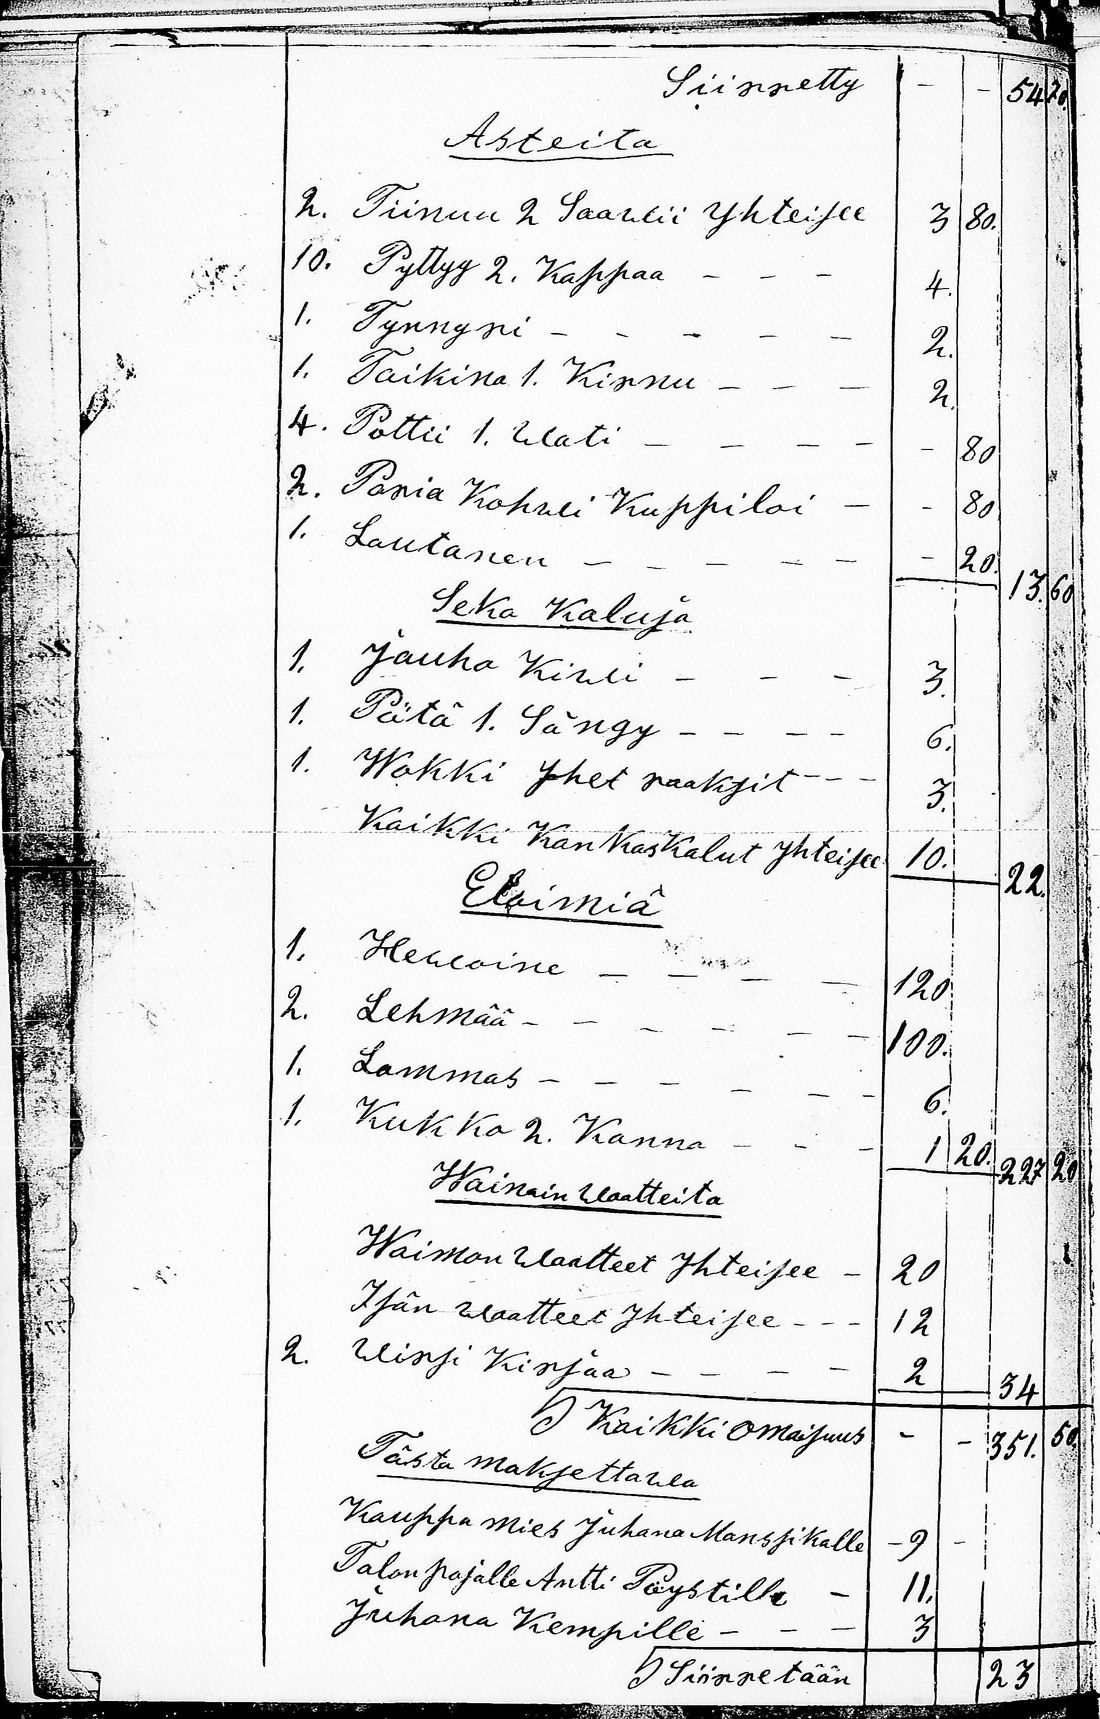 Siirretty - - 54 70.
Asteita
2. Tiinuu 2 Saawii Yhteisee 3 80.
10. Pyttyy 2. Kappaa - - - 4.
1. Tynnyri - - - - - 2.
1. Taikina 1. Kirnu - - - 2.
4. Pottii 1. Wati - - - - - 80
2. Paria Kohwi Kuppiloi - - 80
1. Lautanen - - - - - - 20. 13. 60
Seka Kaluja
1. Jauho Kiwi - - - 3.
1. Pätä 1. Sängy - - - - 6.
1. Wokki Yhet raaksit - - - 3.
Kaikki KankasKalut Yhteisee 10. 22.
Eloimiä
1. Hewoine - - - - 120
2. Lehmää - - - - - - 100.
1. Lammas - - - - - - 6.
1. Kukko 2. Kanna - - - 1 20. 227 20
Wainain Waatteita
Waimon Waatteet Yhteisee - 20
Isän Waatteet Yhteisee - - - 12
2. Wirsi Kirjaa - - - - 2 34
Kaikki Omaisuus - - 351. 50.
Tästa maksettawa
Kauppa mies Juhana Manssikalle - 9 -
Talon pojalle Antti Pöystille - 11.
Juhana Kempille - - - 3
Siirretään 23